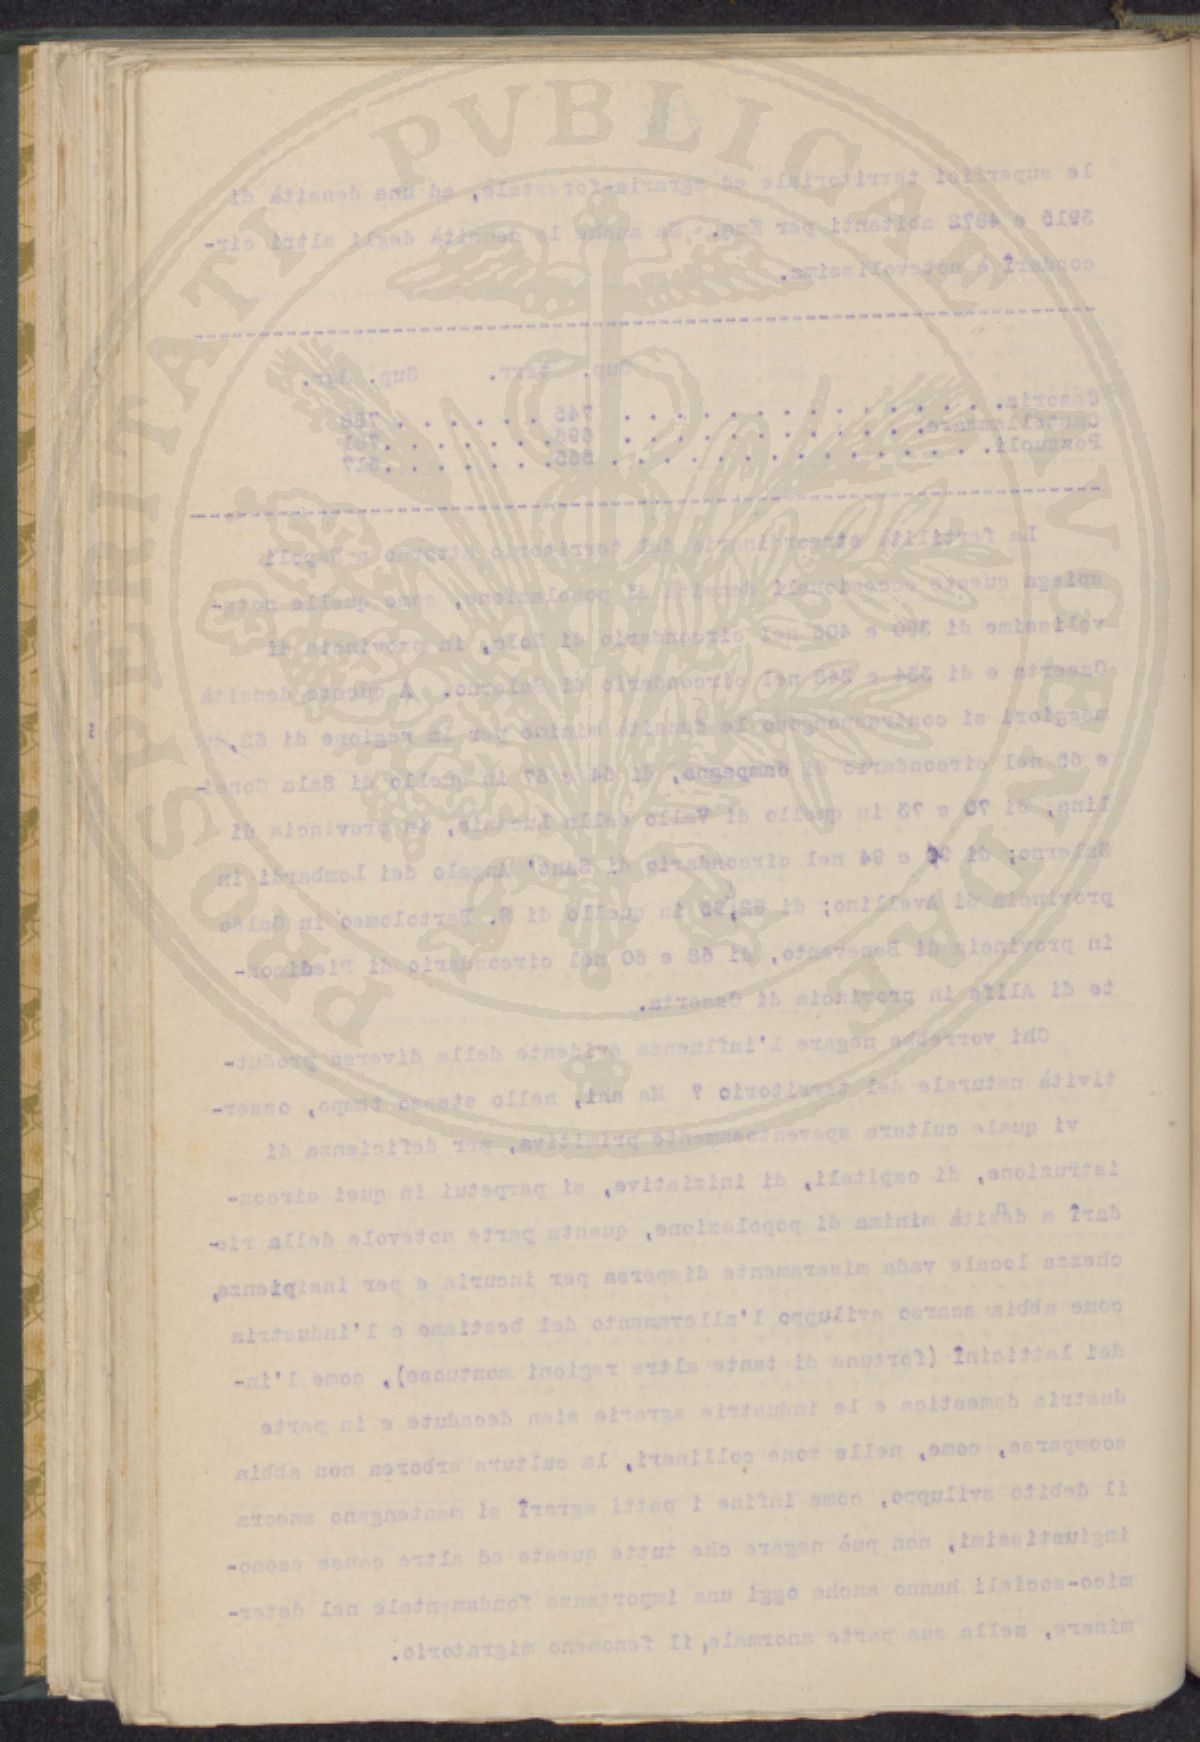 le superfici territoriale ed agraria-forestale, ad una densità di
3915 e 4872 abitanti per Kmq. Ma anche la densità degli altri cir-
condarî è notevolissima.
Sup. terr. Sup. agr.
Casoria. . . . . . . . . . . . . . . 745 . . . . . . 788
Castellammare. . . . . . . . . . . . 696. . . . . . .
Pozzuoli. . . . . . . . . . . . . . . 565. . . . . . .617
La fertilità straordinaria del territorio attorno a Napoli
spiega queste eccezionali densità di popolazione, come quelle note-
volissime di 390 e 408 nel circondario di Nola, in provincia di
Caserta e di 334 e 348 nel circondario di Salerno. A queste densità
maggiori si contrappongono le densità minime per la regione di 62,
e 65 nel circondario di Campagna, di 64 e 67 in quello di Sala Consi-
lina, di 70 e 73 in quello di Vallo della Lucania, in provincia di
Salerno; di e 94 nel circondario di Sant' Angelo dei Lombardi in
provincia di Avellino; di in quello di S. Bartolomeo in Galdo
in provincia di Benevento, di 58 e 60 nel circondario di Piedimon-
te di Alife in provincia di Caserta.
Chi vorrebbe negare l'influenza evidente della diversa produt-
tività naturale del territorio ? Ma chi, nello stesso tempo, osser-
vi quale cultura spaventosamente primitiva, per deficienza di
istruzione, di capitali, di iniziative, si perpetui in quei circon-
darî a densità minima di popolazione, quanta parte notevole della ric-
chezza locale vada miseramente dispersa per incuria e per insipienza,
come abbia scarso sviluppo l'allevamento del bestiame e l'industria
dei latticinî (fortuna di tante altre regioni montuose), come l'in-
dustria domestica e le industrie agrarie sien decadute e in parte
scomparse, come, nelle zone collinari, la cultura arborea non abbia
il debito sviluppo, come infine i patti agrarî si mantengano ancora
ingiustissimi, non può negare che tutte queste ed altre cause econo-
mico-sociali hanno anche oggi una importanza fondamentale nel deter-
minare, nella sua parte anormale, il fenomeno migratorio.
PROSPERITATI PVBLICAE AVGENDAE